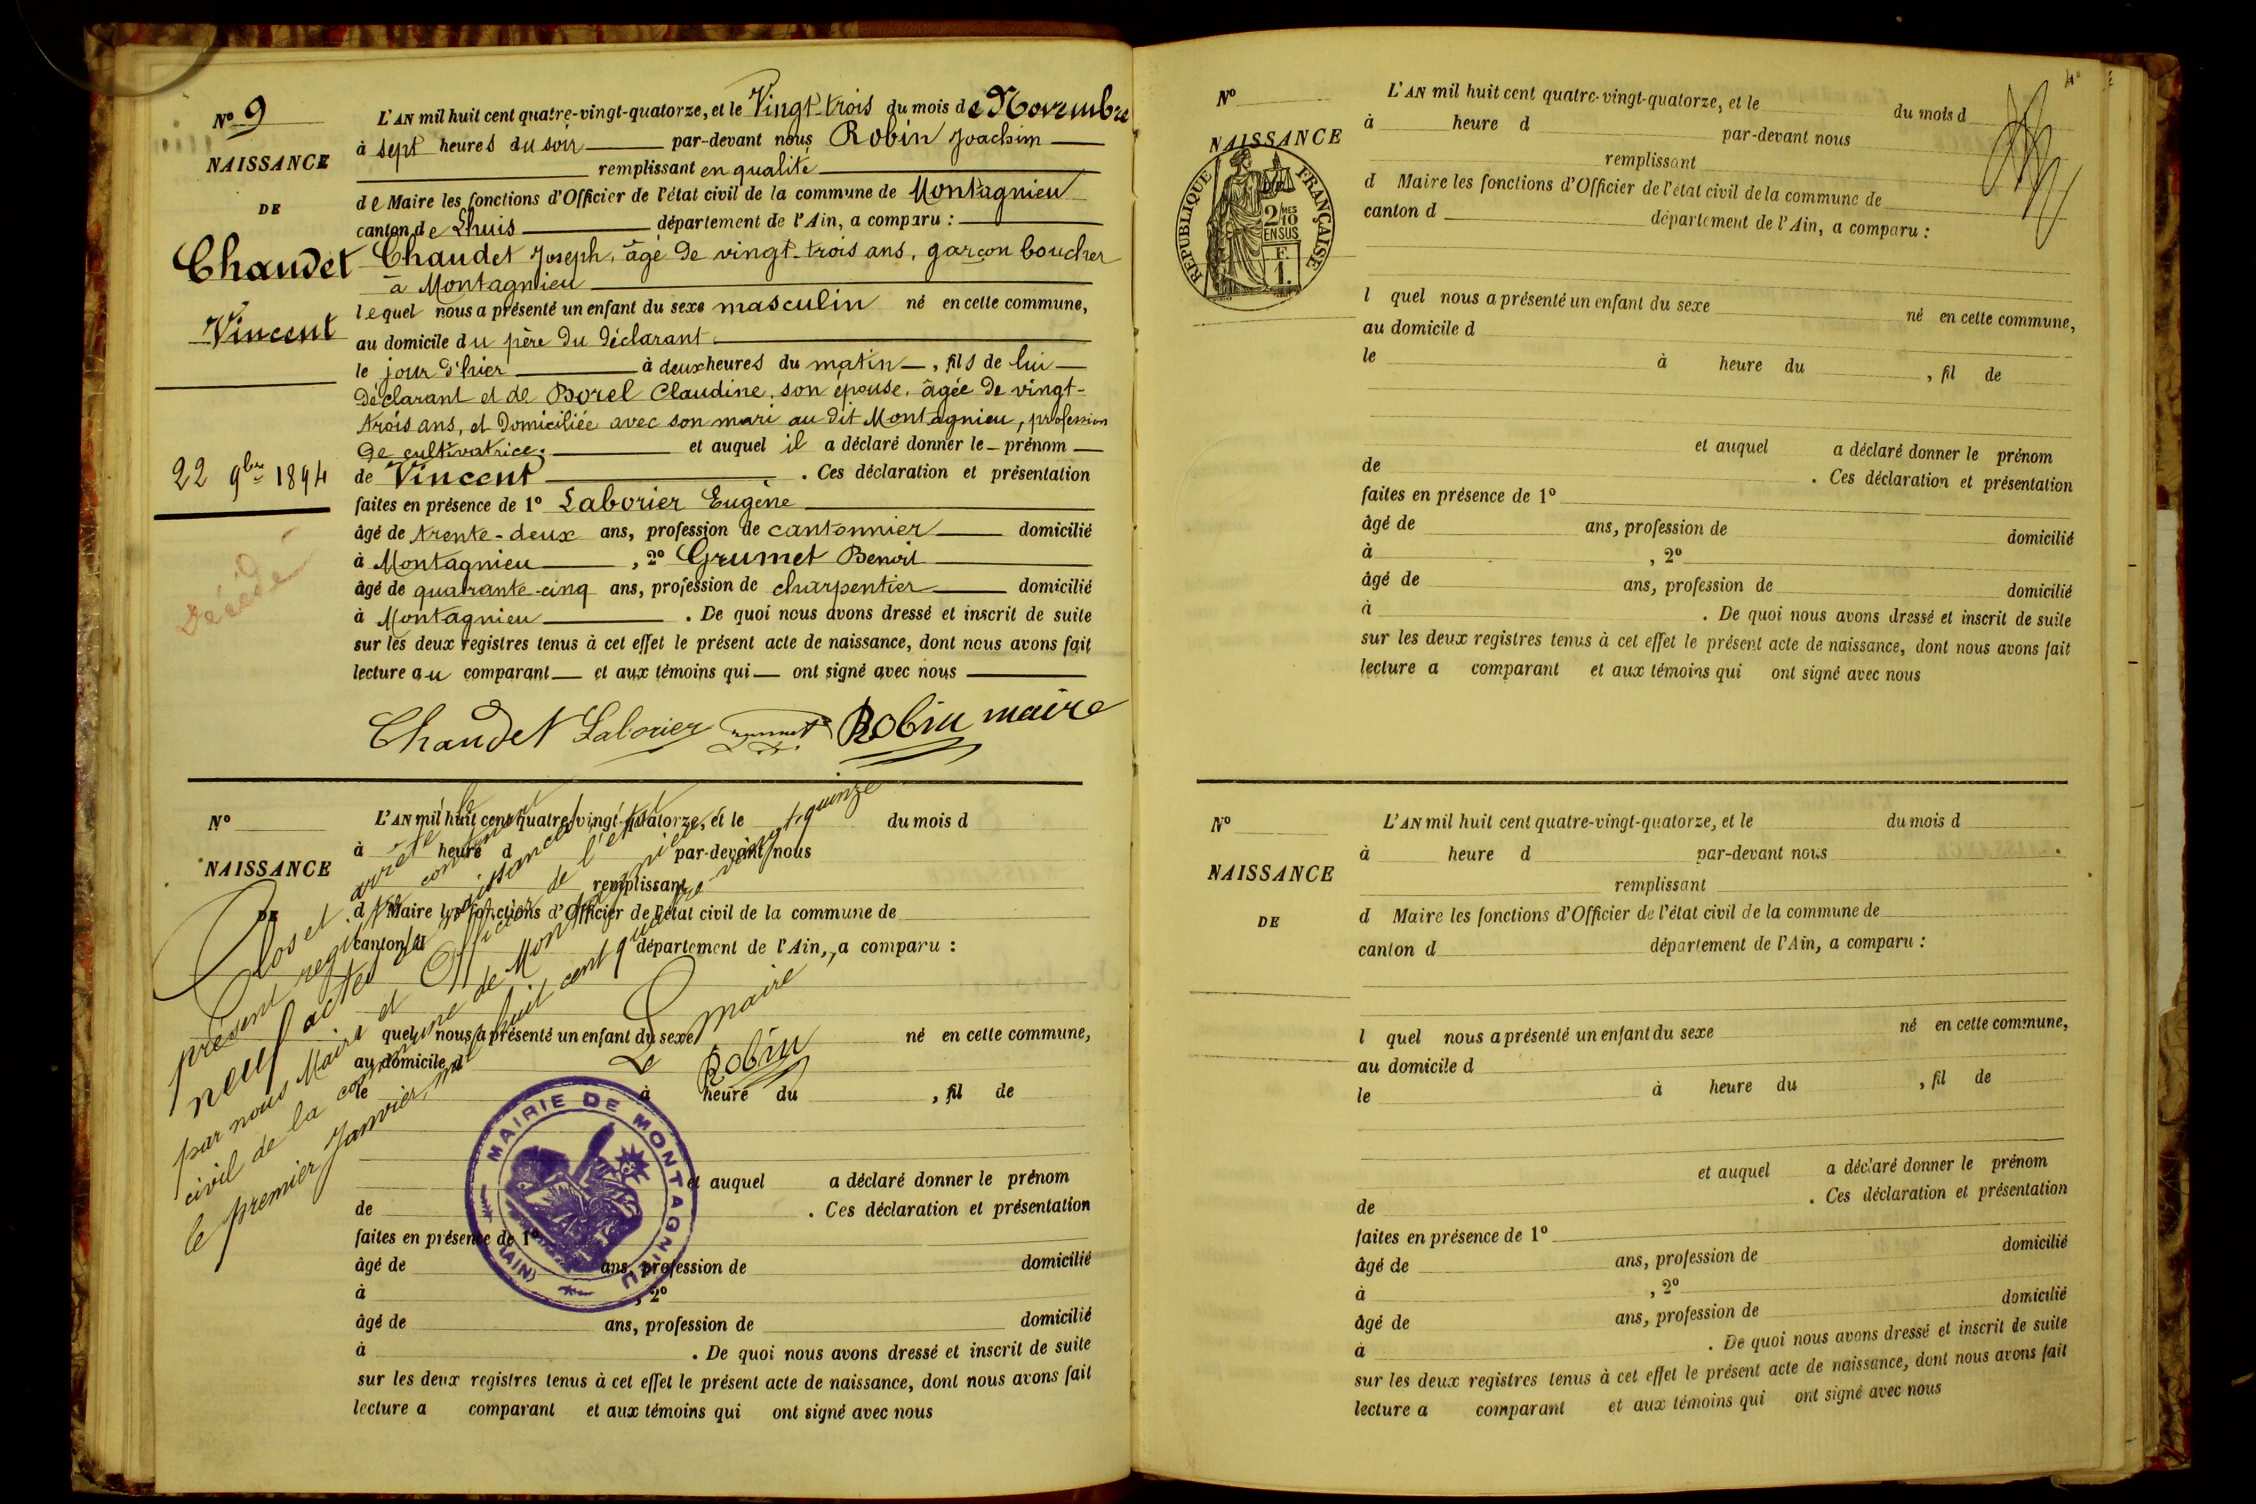 Nº 9
NAISSANCE
DE
Chaudet
Vincent
22 9bre 1894
Décédé
L'AN mil huit cent quatre-vingt-quatorze, et le Vingt-trois du mois de Novembre
à sept heures du soir par-devant nous Robin Joachim
remplissant en qualité
de Maire les fonctions d'Officier de l'état civil de la commune de Montagnieu
canton de Lhuis département de l'Ain, a comparu :
Chaudet Joseph, âgé de vingt-trois ans, garçon boucher
à Montagnieu
lequel nous a présenté un enfant du sexe masculin né en cette commune,
au domicile du père du déclarant
le jour d'hier à deux heures du matin, fils de lui
déclarant et de Borel Claudine, son épouse, âgée de vingt-
trois ans, et domiciliée avec son mari au dit Montagnieu, profession
de cultivatrice. et auquel il a déclaré donner le prénom
de Vincent . Ces déclaration et présentation
faites en présence de 1º Laborier Eugène
âgé de trente-deux ans, profession de cantonnier domicilié
à Montagnieu , 2º Grumet Benoit
âgé de quarante-cinq ans, profession de charpentier domicilié
à Montagnieu . De quoi nous avons dressé et inscrit de suite
sur les deux registres tenus à cet effet le présent acte de naissance, dont nous avons fait
lecture au comparant et aux témoins qui ont signé avec nous
Chaudet Laborier Grumet Robin maire
Nº
NAISSANCE
DE
L'AN mil huit cent quatre-vingt-quatorze, et le du mois d
à heure d par-devant nous
remplissant
d Maire les fonctions d'Officier de l'état civil de la commune de
canton d département de l'Ain, a comparu :
quel nous a présenté un enfant du sexe né en cette commune,
au domicile d
le à heure du , fil de
et auquel a déclaré donner le prénom
de . Ces déclaration et présentation
faites en présence de 1º
âgé de ans, profession de domicilié
à , 2º
âgé de ans, profession de domicilié
à . De quoi nous avons dressé et inscrit de suite
sur les deux registres tenus à cet effet le présent acte de naissance, dont nous avons fait
lecture a comparant et aux témoins qui ont signé avec nous
Clos et arrêté le
présent registre contenant
neuf actes de naissances
par nous Maire et Officier de l'état
civil de la commune de Montagnieu
le premier Janvier, mil huit cent quatre-vingt-quinze
Le Maire
Robin
MAIRIE DE MONTAGNIEU
(AIN)
Nº
NAISSANCE
RÉPUBLIQUE FRANÇAISE
2 MES
10
EN SUS
F.
1.
L'AN mil huit cent quatre-vingt-quatorze, et le du mois d
à heure d par-devant nous
remplissant
d Maire les fonctions d'Officier de l'état civil de la commune de
canton d département de l'Ain, a comparu :
l quel nous a présenté un enfant du sexe né en cette commune,
au domicile d
le à heure du , fil de
et auquel a déclaré donner le prénom
de . Ces déclaration et présentation
faites en présence de 1º
âgé de ans, profession de domicilié
à , 2º
âgé de ans, profession de domicilié
à . De quoi nous avons dressé et inscrit de suite
sur les deux registres tenus à cet effet le présent acte de naissance, dont nous avons fait
lecture a comparant et aux témoins qui ont signé avec nous
Nº
NAISSANCE
DE
L'AN mil huit cent quatre-vingt-quatorze, et le du mois d
à heure d par-devant nous
remplissant
d Maire les fonctions d'Officier de l'état civil de la commune de
canton d département de l'Ain, a comparu :
l quel nous a présenté un enfant du sexe né en cette commune,
au domicile d
le à heure du , fil de
et auquel a déclaré donner le prénom
de . Ces déclaration et présentation
faites en présence de 1º
âgé de ans, profession de domicilié
à , 2º
âgé de ans, profession de domicilié
à . De quoi nous avons dressé et inscrit de suite
sur les deux registres tenus à cet effet le présent acte de naissance, dont nous avons fait
lecture a comparant et aux témoins qui ont signé avec nous